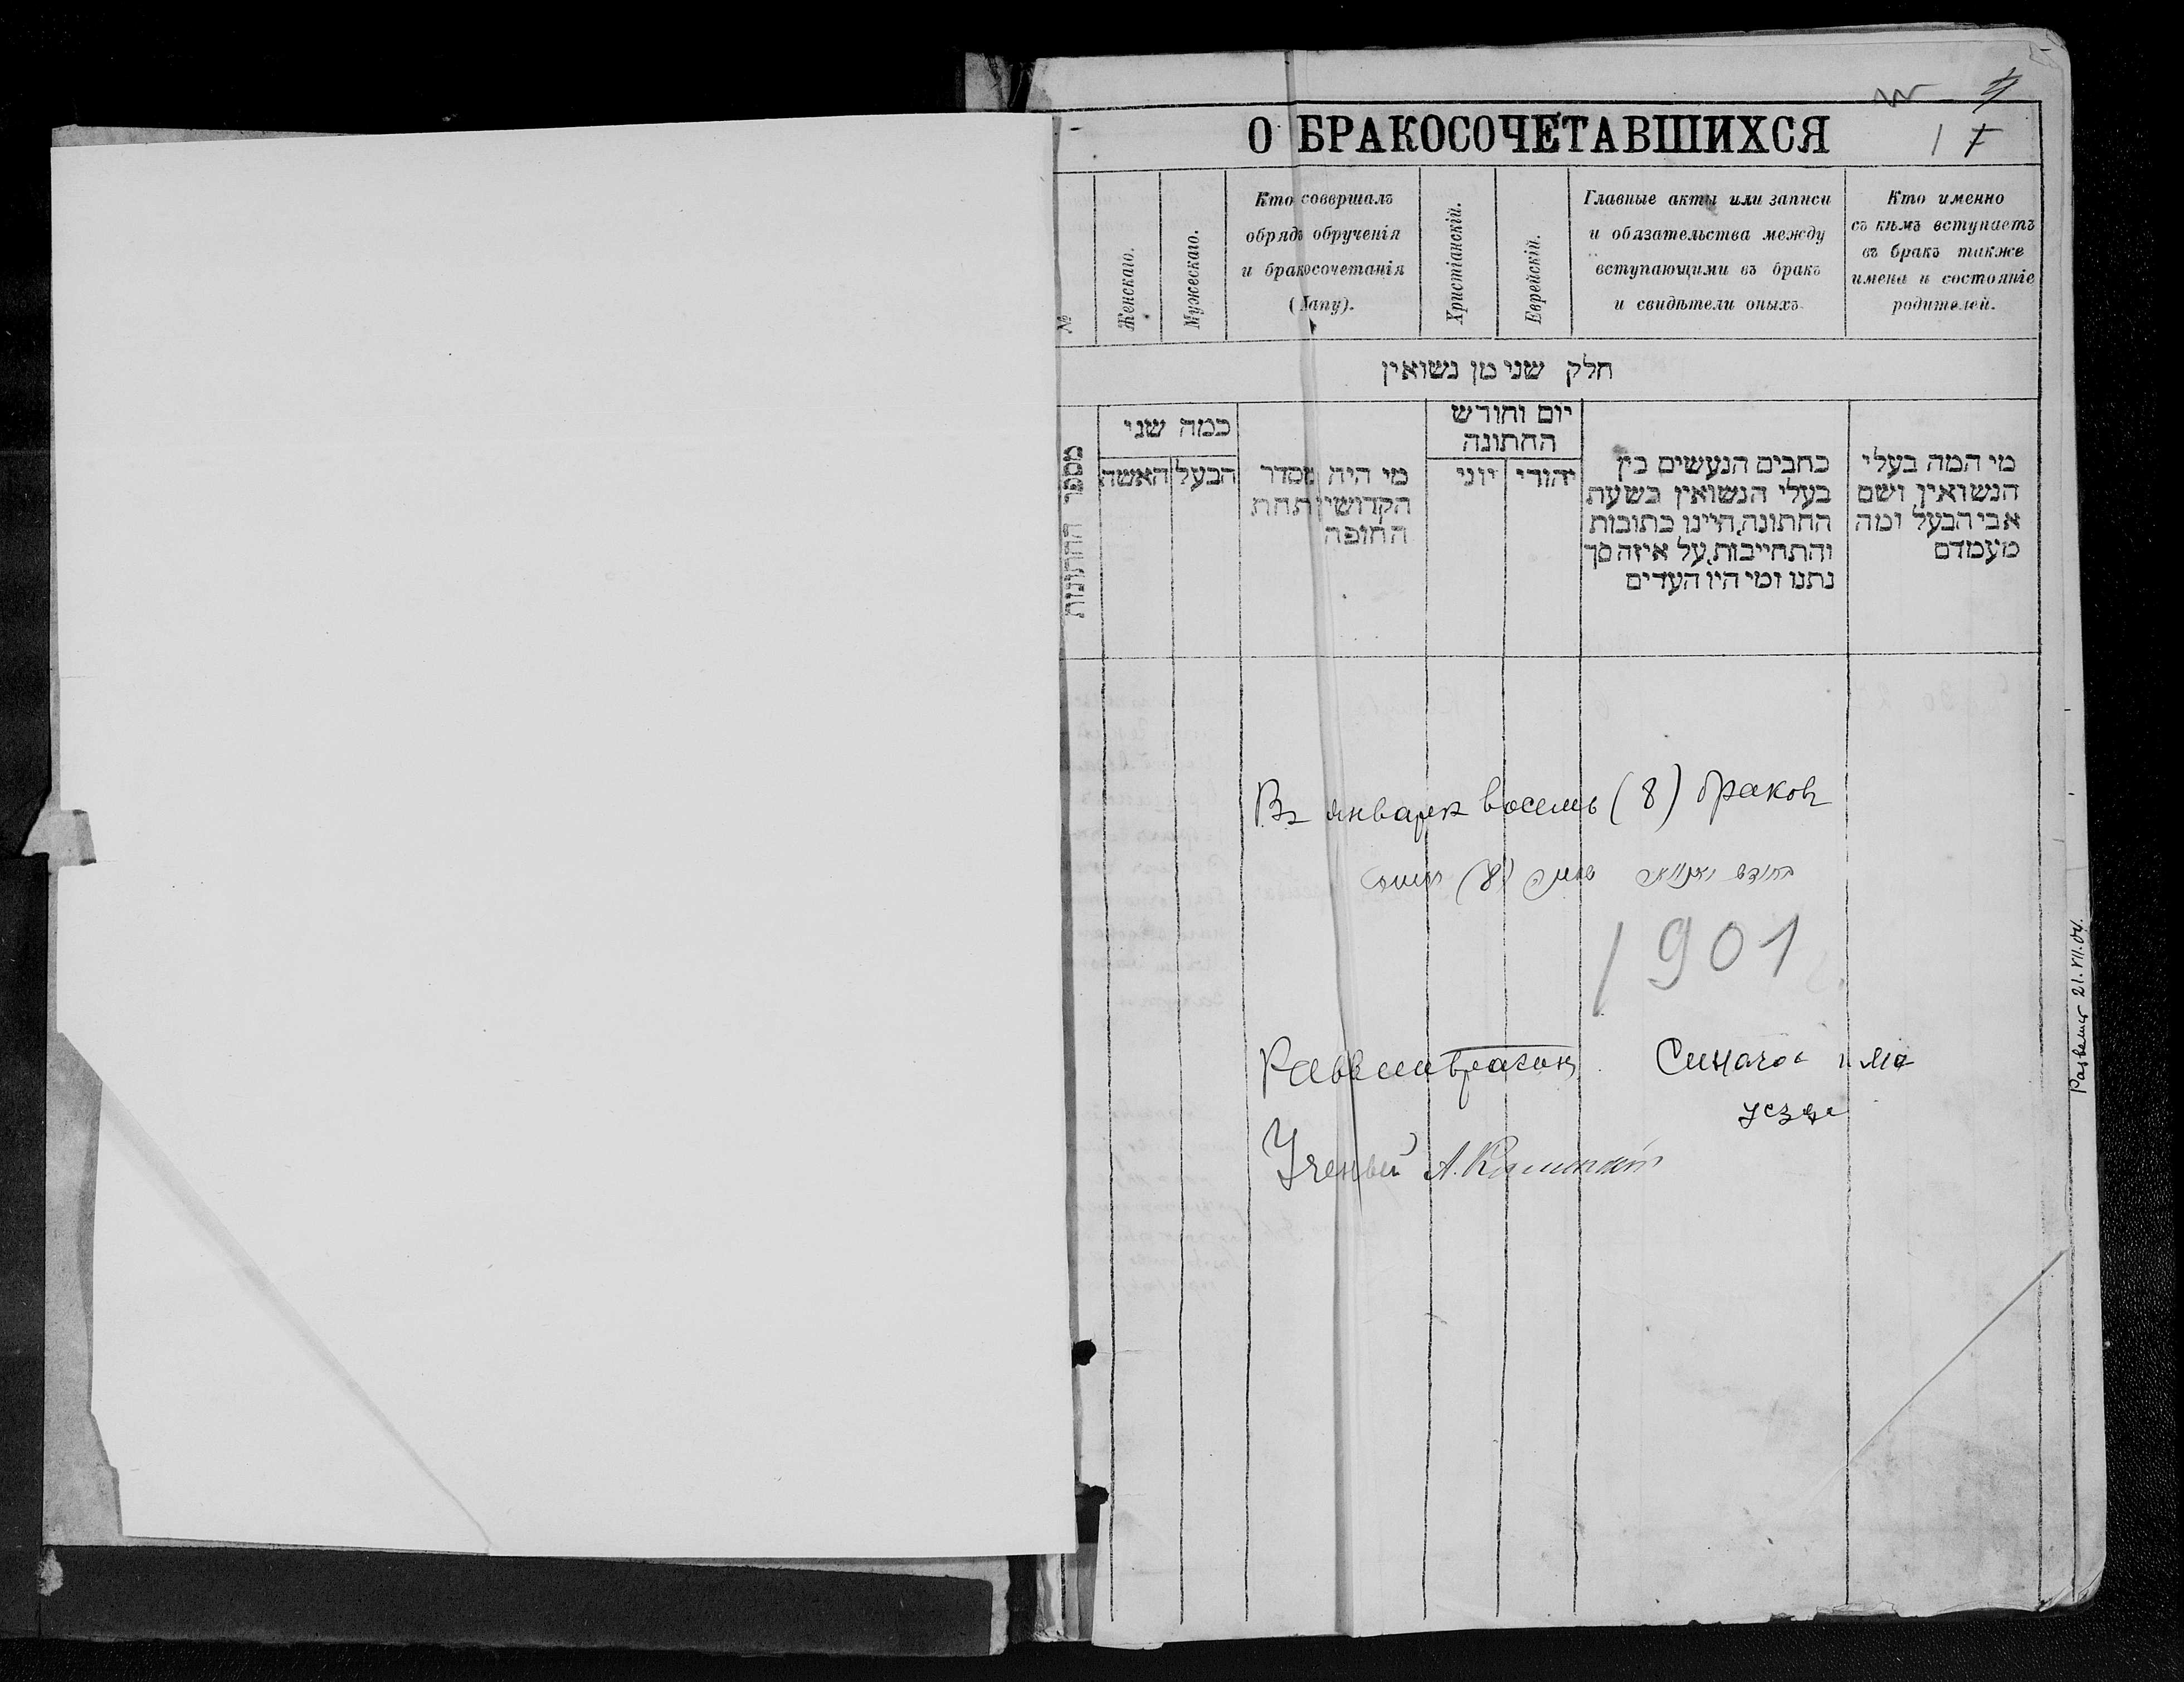 О БРАКОСОЧЕТАВШИХСЯ
1
№
Женскаго.
Мужескаго.
Кто совершалъ
обрядъ обрученія
и бракосочетанія
(Хапу).
Христіанскій.
Еврейскій.
Главные акты или записи
и обязательства между
вступающими въ бракъ
и свидѣтели оныхъ.
Кто именно
съ кѣмъ вступаетъ
въ бракъ также
имена и состояніе
родителей.
חלק שני מן נשואין
מספר החתונות
כמה שני
הבעל האשה
מי היה מסדר
הקדושין תחת
החופה
יום וחודש
החתונה
יהודי יוני
כתבים הנעשים בין
בעלי הנשואין בשעת
החתונה, היינו כתובות
והתחייבות, על איזה סך
נתנו ומי היו העדים
מי המה בעלי
הנשואין ושם
אבי הבעל ומה
מעמדם
Въ январѣ восемь (8) браковъ
בחודש יאנואר שמנה (8)
1901
Раввинъ
Ученый А.
21.VII.04.